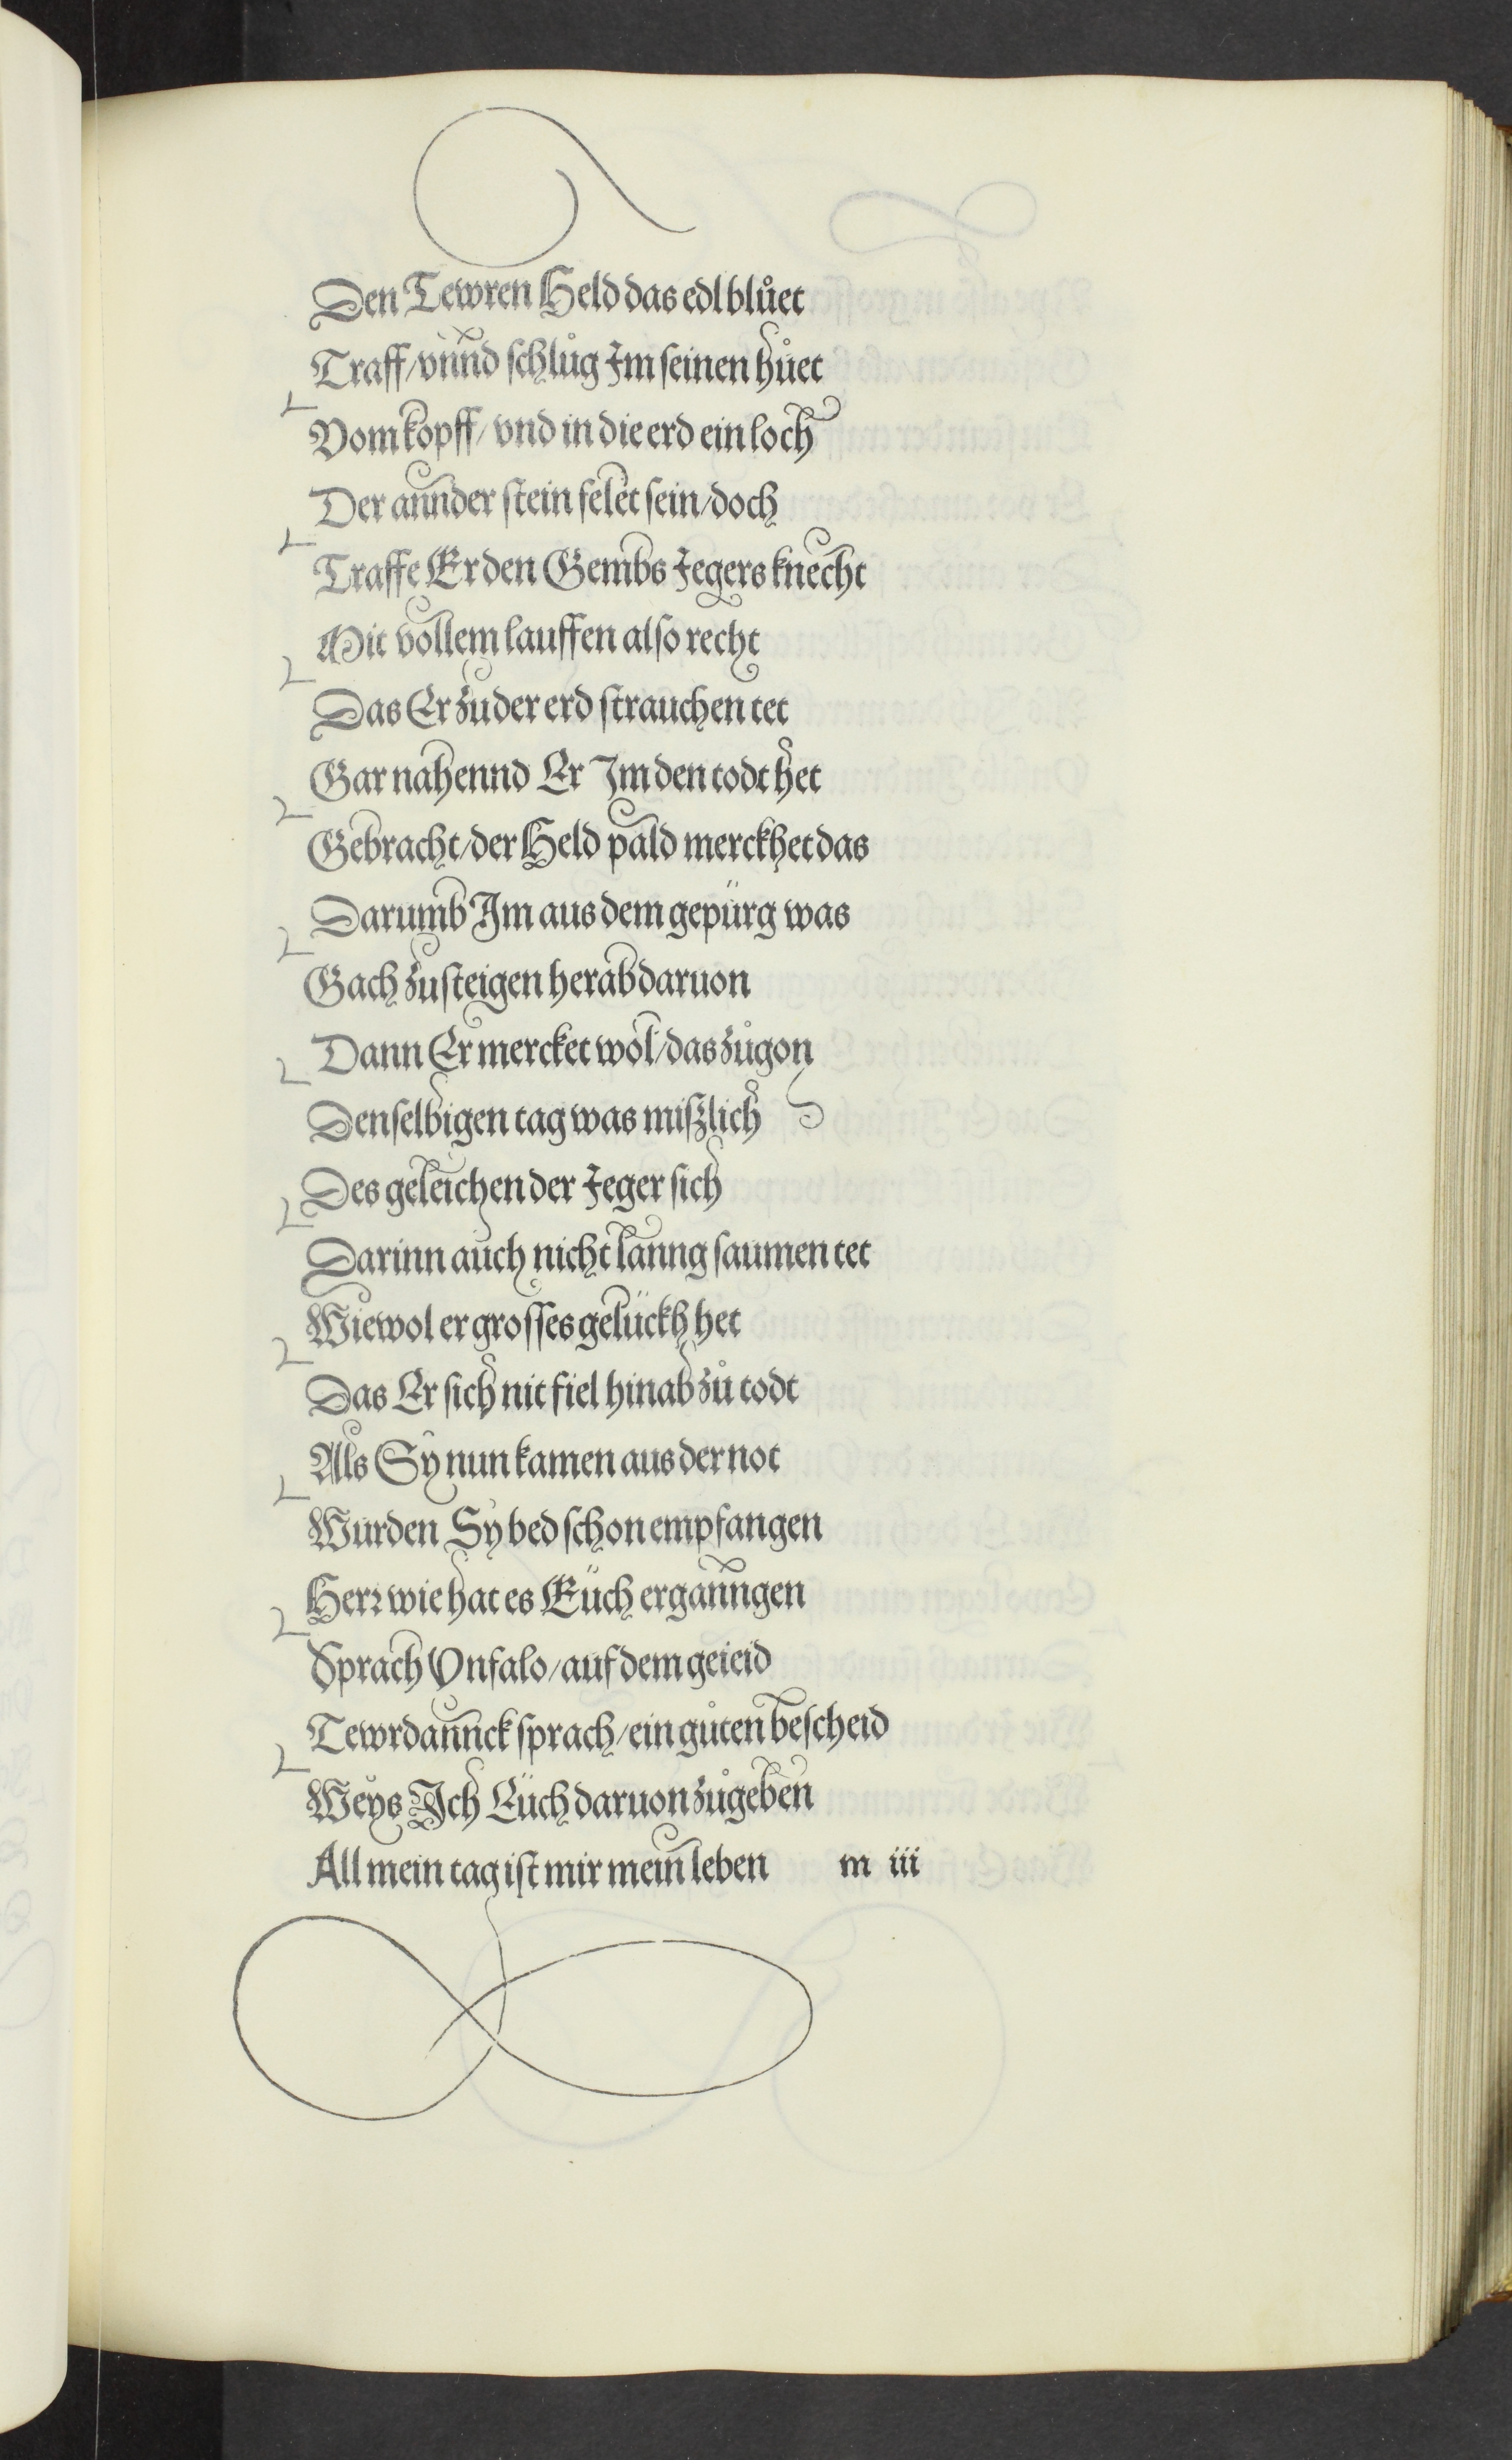 Den Tewren Held das edl blůet
Traff/ vnnd schlůg Im seinen hůet
Vom kopff/ vnd in die erd ein loch
Der annder stein felet sein/ doch
Traffe Er den Gembs Jegers knecht
Mit vollem lauffen also recht
Das Er zu der erd strauchen tet
Gar nahennd Er Im den todt het
Gebracht/ der Held pald merckhet das
Darumb Im aus dem gepürg was
Gach zusteigen herab daruon
Dann Er mercket wol/ das zůgon
Denselbigen tag was mißlich
Des geleichen der Jeger sich
Darinn auch nicht lanng saumen tet
Wiewol er grosses gelückh het
Das Er sich nit fiel hinab zů todt
Als Sy nun kamen aus der not
Wurden Sy bed schon empfangen
Herr wie hat es Euch erganngen
Sprach Vnfalo/ auf dem geieid
Tewrdannck sprach/ ein gůten bescheid
Weys Ich Euch daruon zůgeben
All mein tag ist mir mein leben m iii